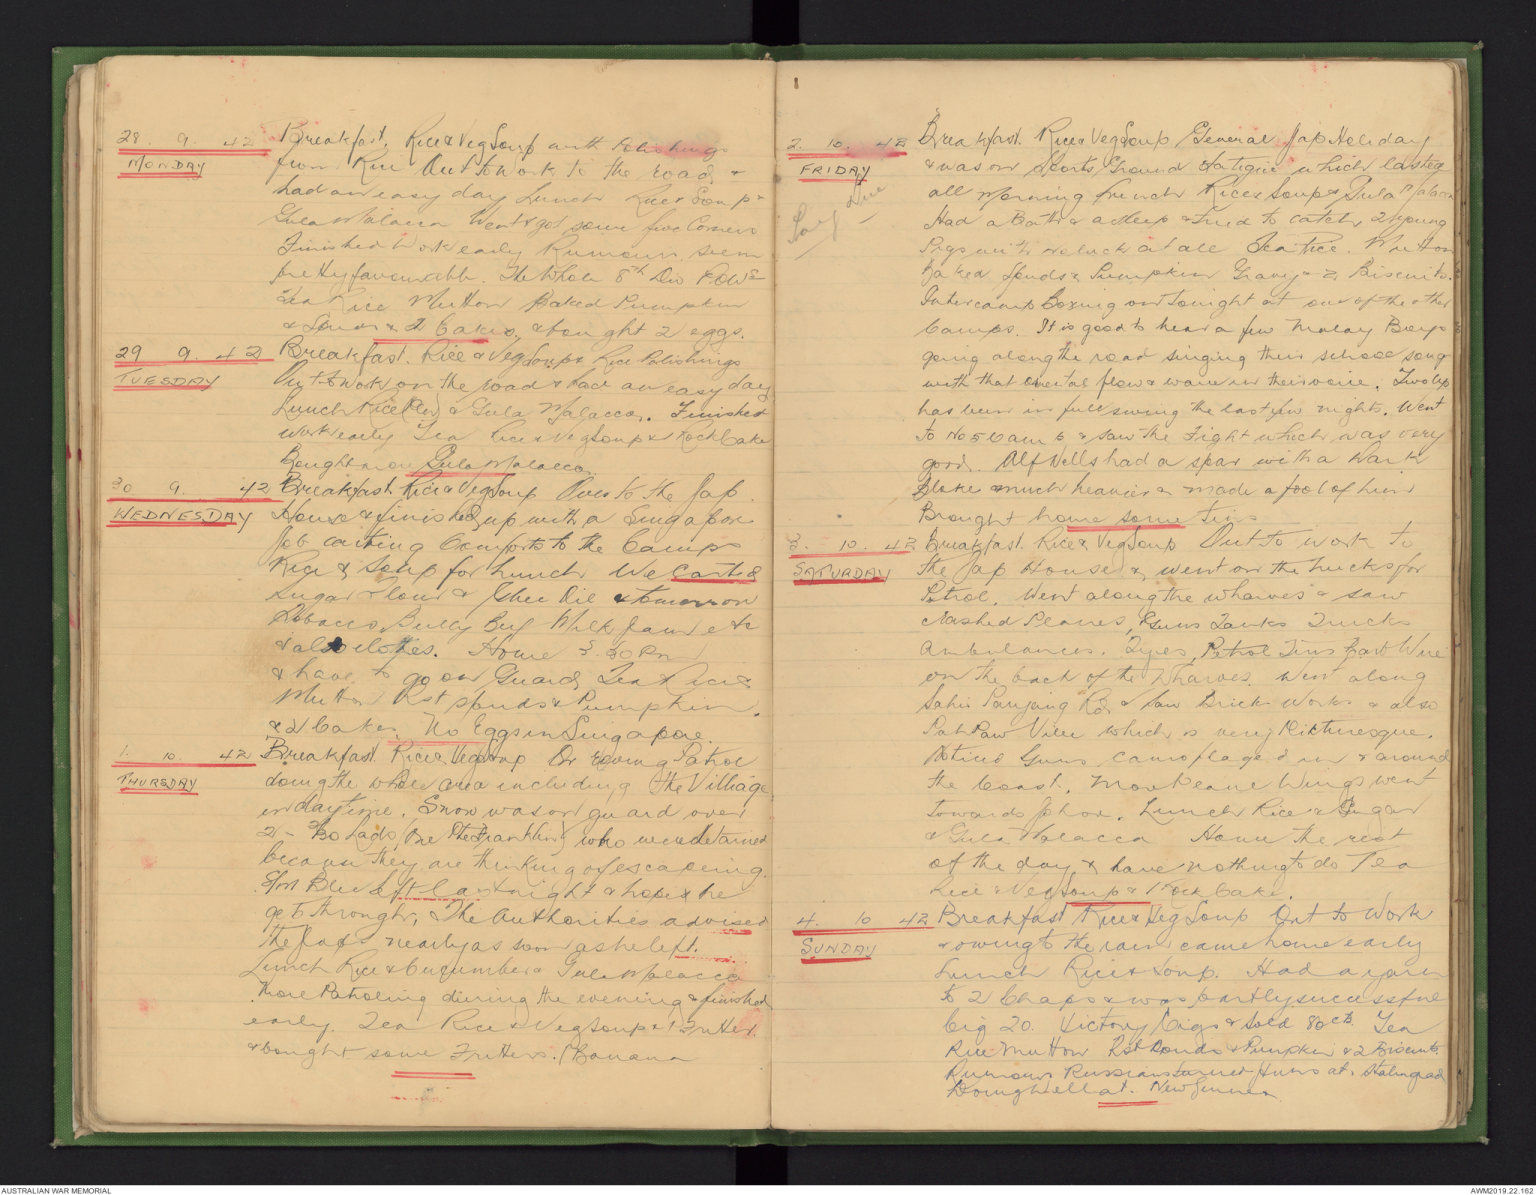 28. 9. 42
MONDAY
Breakfast. Rice & Veg Soup with Polishings
from Rice Out to work to the road &
had an easy day Lunch Rice & Soup &
Gula Malacca Went & got some five Corners
Finished Work early Rumours seem
pretty favourable. The Whole 8th Div POWs
Tea Rice Mutton Baked Pumpkin
& Spuds & 2 Cakes, & bought 2 eggs.
29 9. 42
TUESDAY
Breakfast. Rice & Veg Soup & Rice Polishings
Out to work on the road & had an easy day
Lunch Rice & Gula Malacca. Finished
work early Tea Rice & Veg Soup & Rock Cake
Bought more Gula Malacca.
30 9. 42
WEDNESDAY
Breakfast Rice & Veg Soup Over to the Jap
House & finished up with a Singapore
Job carting Comforts to the Camps
Rice & Soup for Lunch We Carted
Sugar Flour & Ghee Oil & tomorrow
Tobacco, Bully Beef Milk Jam etc
& also clothes. Home 3.30 Pm
& have to go on Guard, Tea Rice &
Mutton Rst spuds & Pumpkin.
& 2 Cakes. No Eggs in Singapore.
1. 10. 42
THURSDAY
Breakfast. Rice & Veg Soup On roving Patrol
doing the whole area including the Village
in daytime. Snow was on guard over
2 - Bo Lads, Franklin, who were detained
because they are thinking of escapeing.
Blue left last night & hope he
gets through, The Authorities advised
the Japs nearly as soon as he left.
Lunch Rice & Cucumber & Gula Malacca
More Patroling during the evening & finished
early. Tea Rice & Veg Soup & 1 Fritter
& bought some Fritters. (Banana
2. 10. 42
FRIDAY
Breakfast. Rice & Veg Soup General Jap Holiday
& was on Sports Ground Fatigue which lasted
all Morning Lunch Rice Soup & Gula Malacca
Had a Bath & a sleep & tried to catch 2 young
Pigs with no luck at all Tea Rice. Mutton
Baked Spuds & Pumpkin Gravy & 2 Biscuits.
Intercamp Boxing on tonight at one of the other
Camps. It is good to hear a few Malay Boys
going along the road singing their school song
with that oriental flow & waver in their voice. Two Up
has been in full swing the last few nights. Went
to No 5 Camp & saw the Fight which was very
good. Alf Wells had a spar with a
Bloke much heavier & made a fool of him
Brought home some Tins
3. 10. 42
SATURDAY
Breakfast. Rice & Veg Soup Out to work to
the Jap House & went on the trucks for
Petrol. Went along the wharves & saw
crashed Planes, Guns Tanks Trucks
Ambulances. Tyres, Petrol Tins Barb Wire
on the back of the Wharves. Went along
Panjang Rd & saw Brick Works & also
Pah Paw View which is very Picturesque.
Noticed Guns camoflaged in & around
the Coast. More Plane Wings went
towards Johore. Lunch Rice & Sugar
& Gula Malacca Home the rest
of the day & have nothing to do Tea
Rice & Veg Soup & 1 rock Cake.
4. 10 42
SUNDAY
Breakfast Rice & Veg Soup Out to Work
& owing to the rain came home early
Lunch Rice & Soup. Had a yarn
to 2 Chaps & was partly successful
Cig 20. Victory Cigs & Sold 80 cts. Tea
Rice Mutton Rst Spuds & Pumpkin & 2 Biscuits.
Rumours Russians turned Huns at Stalingrad
Doing Well at New Guinea.
AUSTRALIAN WAR MEMORIAL
AWM2019.22.162